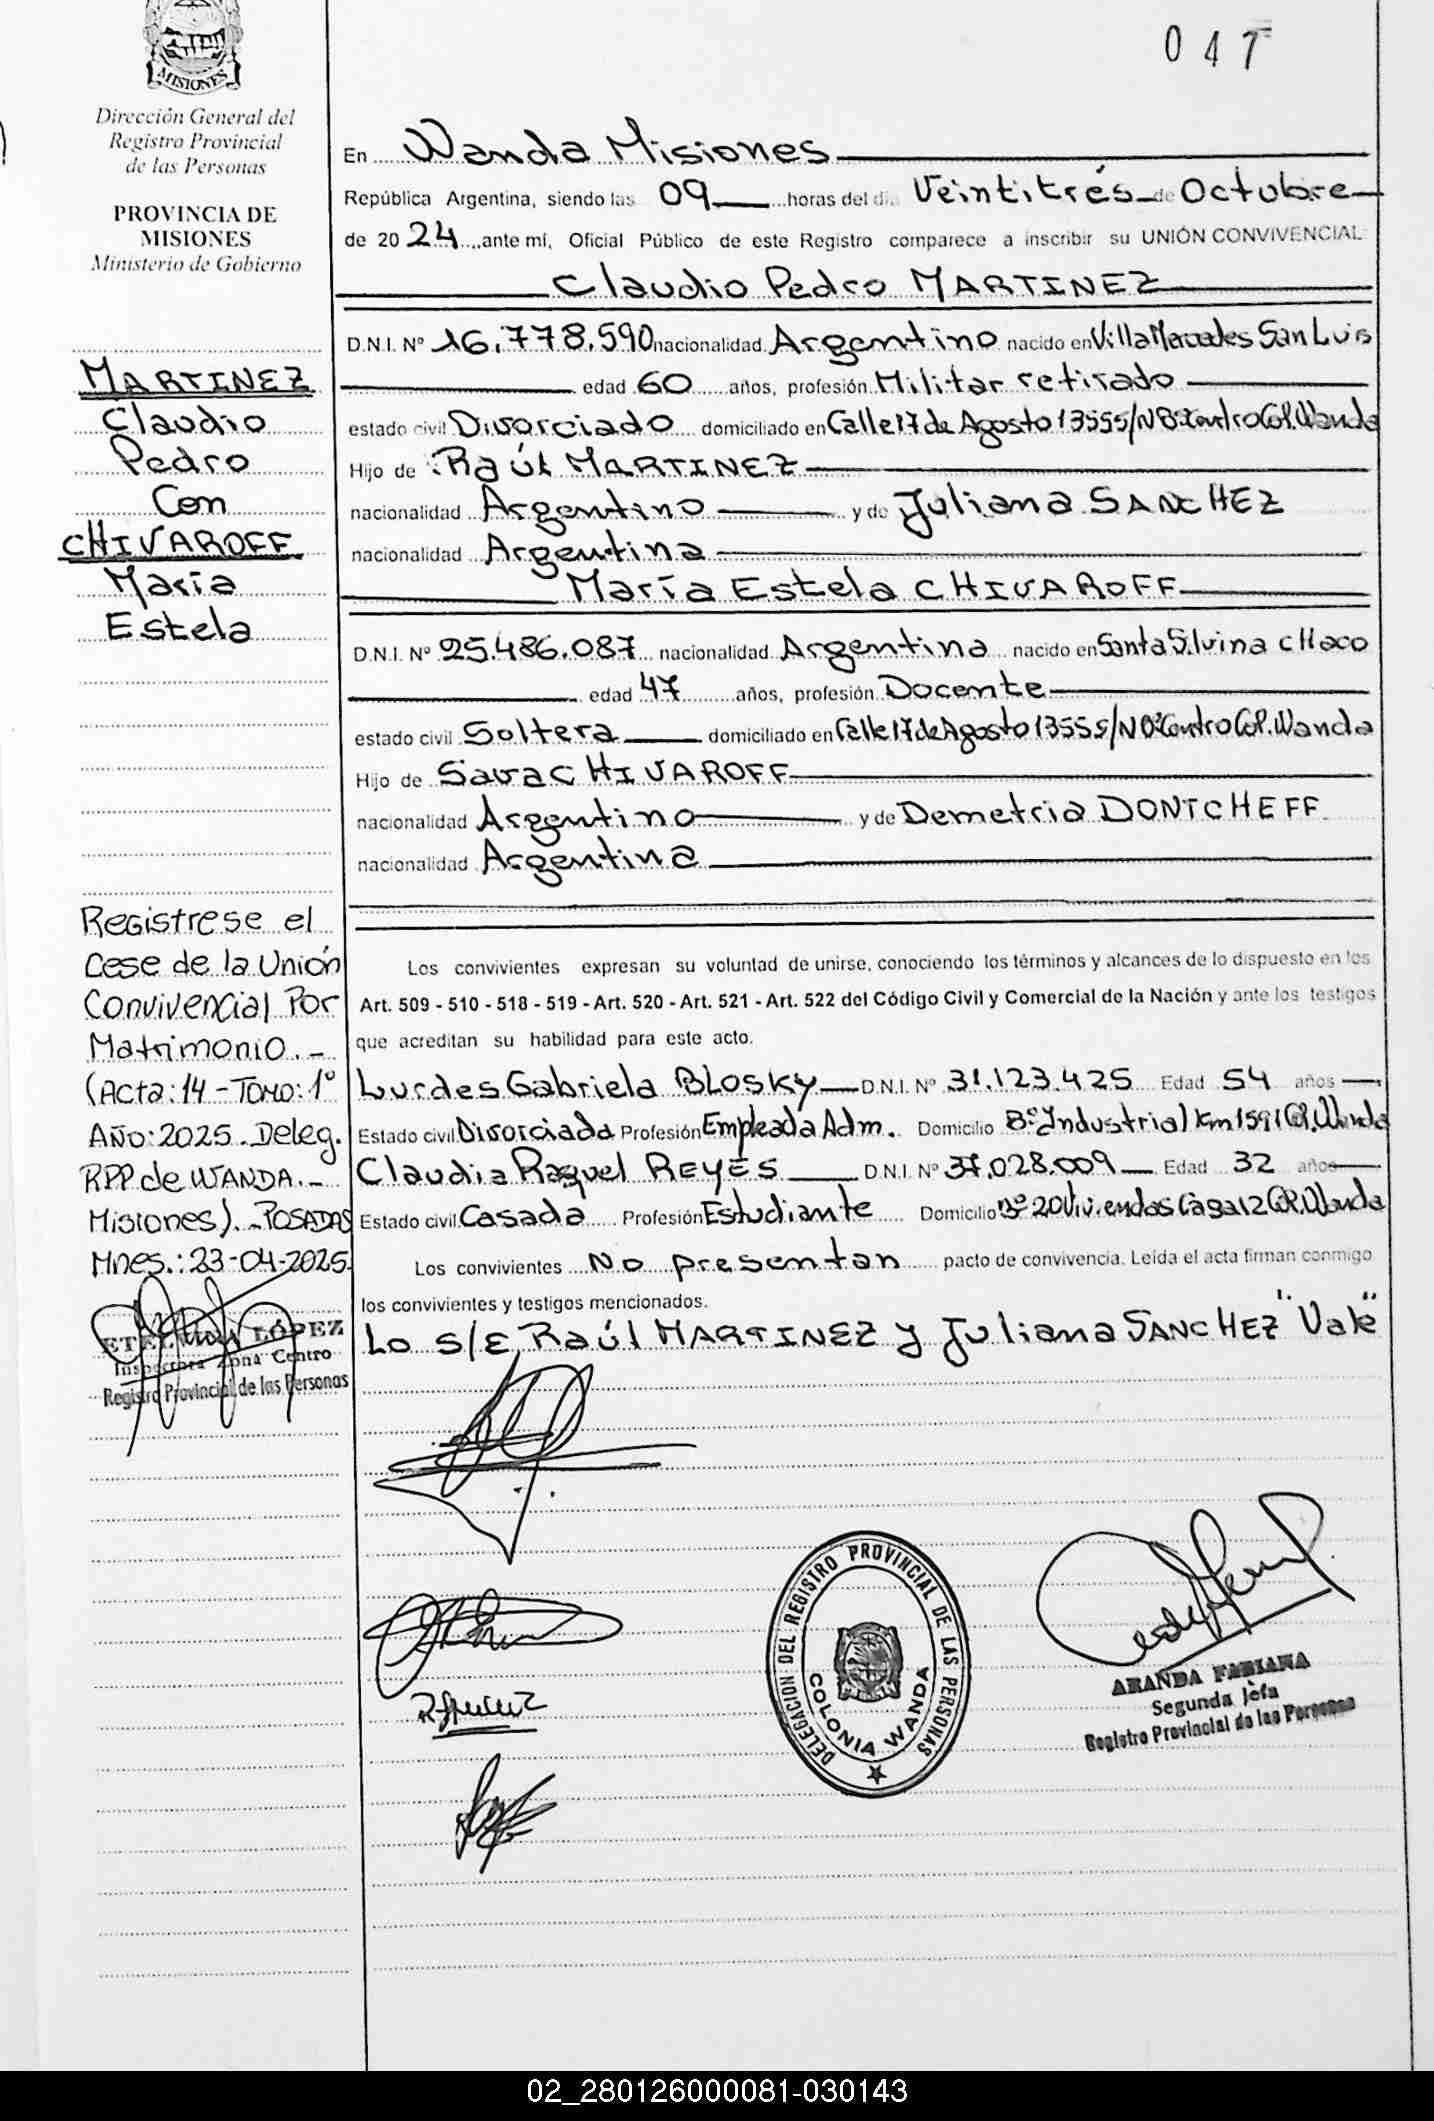 047
MISIONES
Dirección General del
Registro Provincial
de las Personas
PROVINCIA DE
MISIONES
Ministerio de Gobierno
MARTINEZ
Claudio
Pedro
Con
CHIVAROFF
María
Estela
Registrese el
Cese de la Unión
Convivencial Por
Matrimonio.-
(Acta: 14 - Tomo: 1°
Año: 2025. Deleg.
RPP de WANDA.-
Misiones).-POSADAS
Mnes.: 23-04-2025.
LÓPEZ
Inspectora Zona Centro
Registro Provincial de las Personas
En Wanda Misiones
República Argentina, siendo las 09 horas del día Veintitrés de Octubre
de 2024, ante mí, Oficial Público de este Registro comparece a inscribir su UNIÓN CONVIVENCIAL
Claudio Pedro MARTINEZ
D.N.I. Nº 16.778.590 nacionalidad Argentino nacido en Villa Mercedes San Luis
edad 60 años, profesión Militar retirado
estado civil Divorciado domiciliado en Calle 17 de Agosto 1355 S/N Bº Centro Col. Wanda
Hijo de Raúl MARTINEZ
nacionalidad Argentino y de Juliana SANCHEZ
nacionalidad Argentina
María Estela CHIVAROFF
D.N.I. Nº 25.486.087 nacionalidad Argentina nacido en Santa Silvina cHaco
edad 47 años, profesión Docente
estado civil Soltera domiciliado en Calle 17 de Agosto 1355 S/N Bº Centro Col. Wanda
Hijo de Sava CHIVAROFF
nacionalidad Argentino y de Demetria DONTCHEFF
nacionalidad Argentina
Los convivientes expresan su voluntad de unirse, conociendo los términos y alcances de lo dispuesto en los
Art. 509 - 510 - 518 - 519 - Art. 520 - Art. 521 - Art. 522 del Código Civil y Comercial de la Nación y ante los testigos
que acreditan su habilidad para este acto.
Lurdes Gabriela BLOSKY D.N.I. Nº 31.123.425 Edad 54 años
Estado civil Divorciada Profesión Empleada Adm. Domicilio Bº Industrial Km 1591 Col. Wanda
Claudia Raquel REYES D.N.I. Nº 37.028.009 Edad 32 años
Estado civil Casada Profesión Estudiante Domicilio Bº 20 Viviendas Casa 12 Col. Wanda
Los convivientes No presentan pacto de convivencia. Leída el acta firman conmigo
los convivientes y testigos mencionados.
Lo S/E, Raúl MARTINEZ y Juliana SANCHEZ "Vale"
DELEGACION DEL REGISTRO PROVINCIAL DE LAS PERSONAS
COLONIA WANDA
ARANDA FABIANA
Segunda Jefa
Registro Provincial de las Personas
02_280126000081-030143